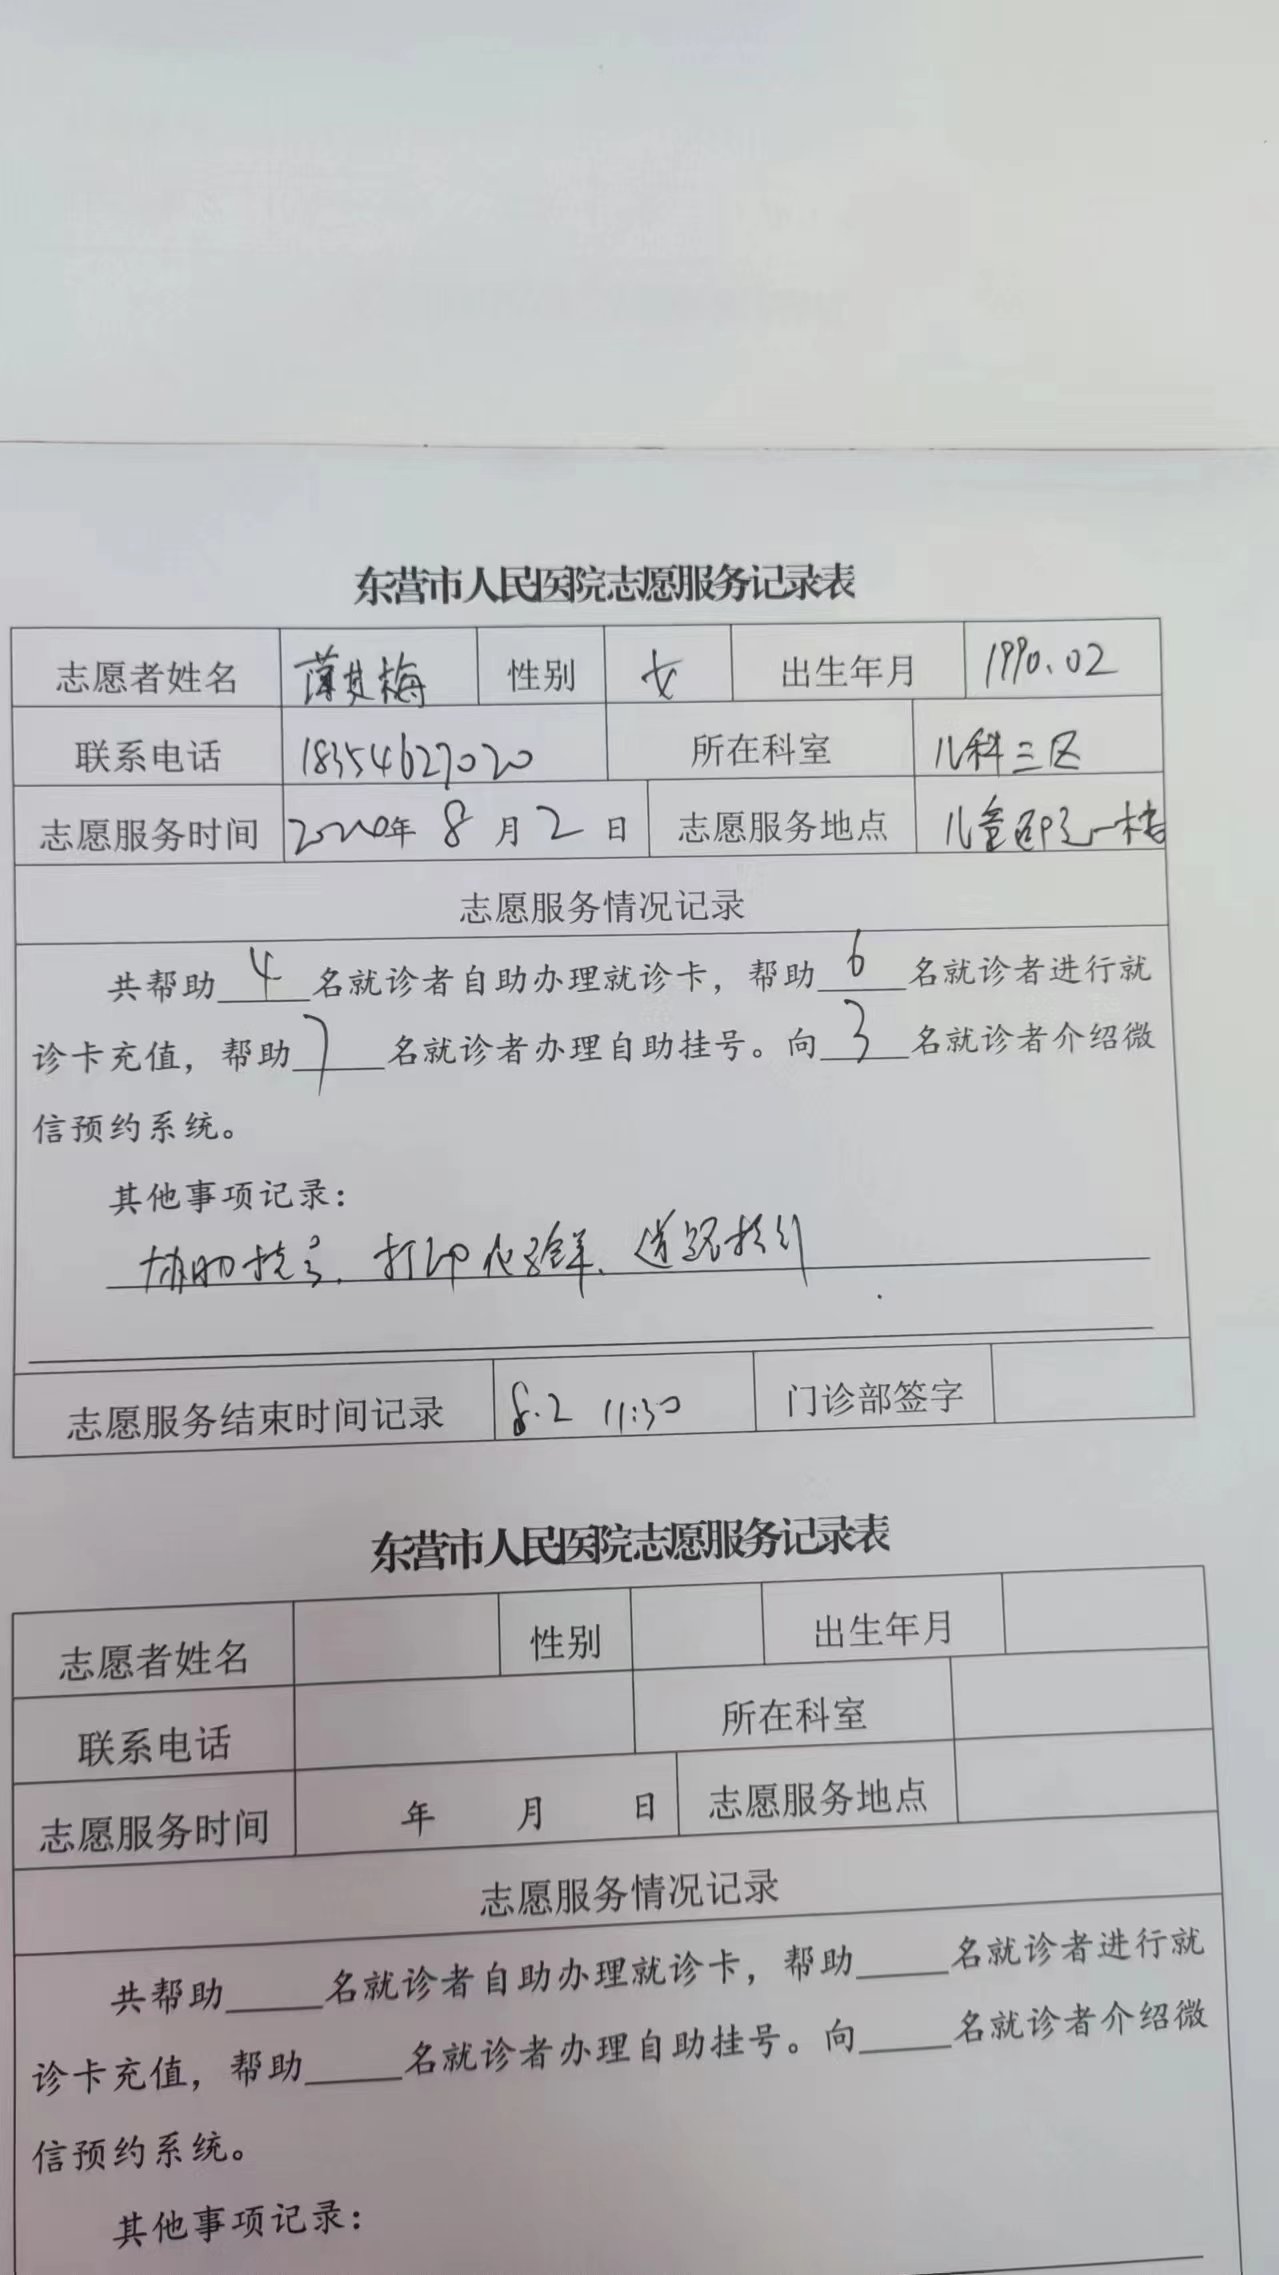 东营市人民医院志愿服务记录表
志愿者姓名 薄其梅 性别 女 出生年月 1990.02
联系电话 18354627020 所在科室 儿科三区
志愿服务时间 2020年 8 月 2 日 志愿服务地点 儿童 一楼
志愿服务情况记录
共帮助 4 名就诊者自助办理就诊卡，帮助 6 名就诊者进行就
诊卡充值，帮助 7 名就诊者办理自助挂号。向 3 名就诊者介绍微
信预约系统。
其他事项记录：
协助挂号、打印化验单、道路指引
志愿服务结束时间记录 8.2 11:30 门诊部签字
东营市人民医院志愿服务记录表
志愿者姓名 性别 出生年月
联系电话 所在科室
志愿服务时间 年 月 日 志愿服务地点
志愿服务情况记录
共帮助_____名就诊者自助办理就诊卡，帮助_____名就诊者进行就
诊卡充值，帮助_____名就诊者办理自助挂号。向_____名就诊者介绍微
信预约系统。
其他事项记录：